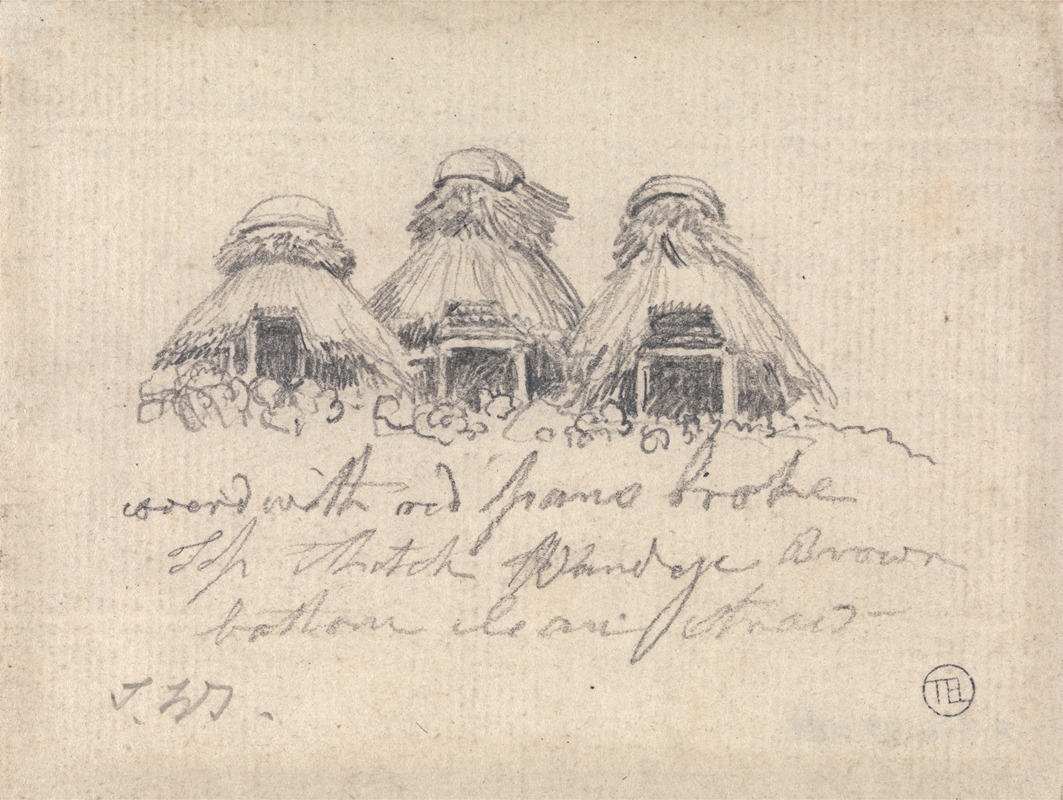 coverd with red pans broke
Top thatch Vandye Brown
bottom clean straw
TEL